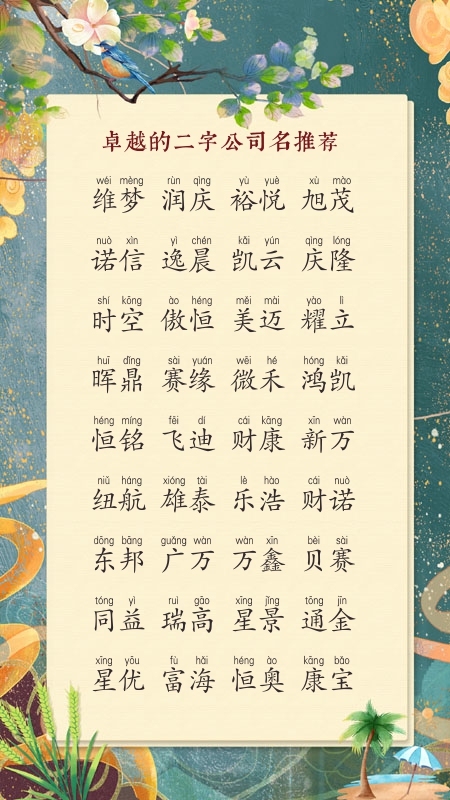 卓越的二字公司名推荐
wéi mèng rùn qìng yù yuè xù mào
维梦 润庆 裕悦 旭茂
nuò xìn yì chén kǎi yún qìng lóng
诺信 逸晨 凯云 庆隆
shí kōng ào héng měi mài yào lì
时空 傲恒 美迈 耀立
huī dǐng sài yuán wēi hé hóng kǎi
晖鼎 赛缘 微禾 鸿凯
héng míng fēi dí cái kāng xīn wàn
恒铭 飞迪 财康 新万
niǔ háng xióng tài lè hào cái nuò
纽航 雄泰 乐浩 财诺
dōng bāng guǎng wàn wàn xīn bèi sài
东邦 广万 万鑫 贝赛
tóng yì ruì gāo xīng jǐng tōng jīn
同益 瑞高 星景 通金
xīng yōu fù hǎi héng ào kāng bǎo
星优 富海 恒奥 康宝